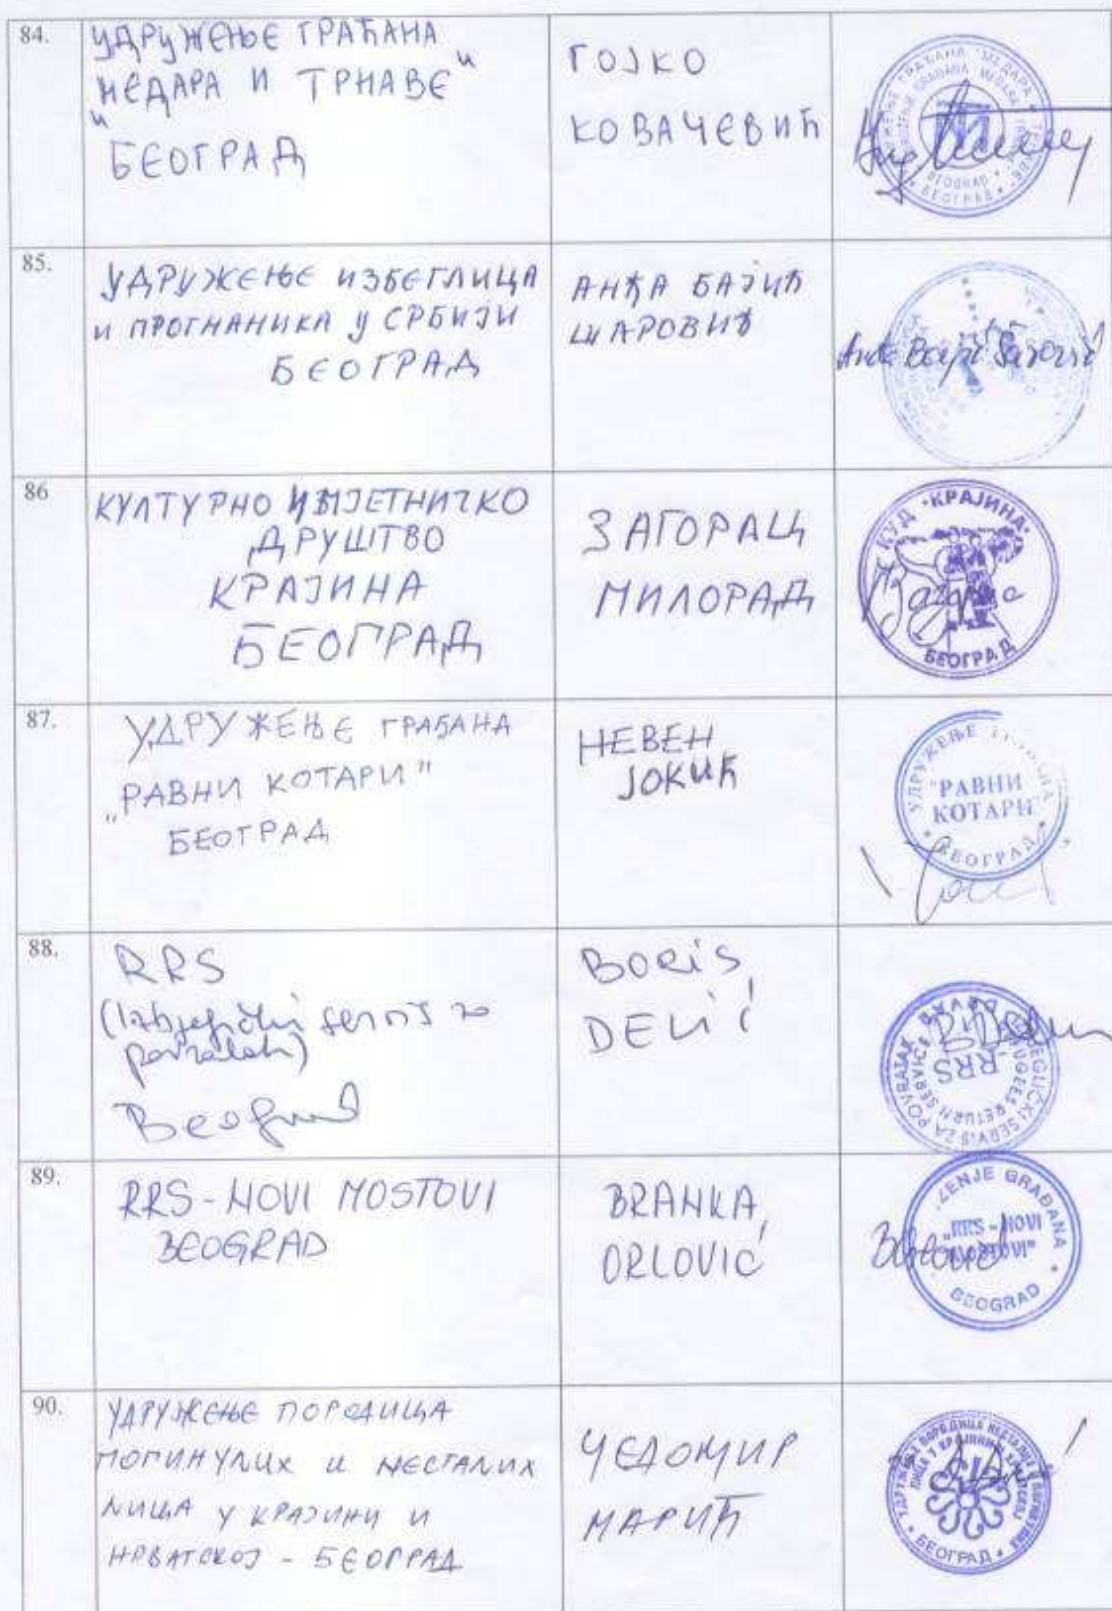 84.
УДРУЖЕЊЕ ГРАЂАНА
"МЕДАРА И ТРНАВЕ"
БЕОГРАД
ГОЈКО
КОВАЧЕВИЋ
БЕОГРАД
85.
УДРУЖЕЊЕ ИЗБЕГЛИЦА
И ПРОГНАНИКА У СРБИЈИ
БЕОГРАД
АНЂА БАЈИЋ
ШАРОВИЋ
86
КУЛТУРНО УМЈЕТНИЧКО
ДРУШТВО
КРАЈИНА
БЕОГРАД
ЗАГОРАЦ
МИЛОРАД
КУД "КРАЈИНА"
БЕОГРАД
87.
УДРУЖЕЊЕ ГРАЂАНА
„РАВНИ КОТАРИ"
БЕОГРАД
НЕВЕН
ЈОКИЋ
УДРУЖЕЊЕ
"РАВНИ
КОТАРИ"
БЕОГРАД
88.
RRS
(Izbjeglički servis za
povratak)
Beograd
BORIS
DELIĆ
RRS
89.
RRS-NOVI MOSTOVI
BEOGRAD
BRANKA
ORLOVIĆ
GRAĐANA
„RRS - NOVI
MOSTOVI"
BEOGRAD
90.
УДРУЖЕЊЕ ПОРОДИЦА
ПОГИНУЛИХ И НЕСТАЛИХ
ЛИЦА У КРАЈИНИ И
ХРВАТСКОЈ - БЕОГРАД
ЧЕДОМИР
МАРИЋ
БЕОГРАД